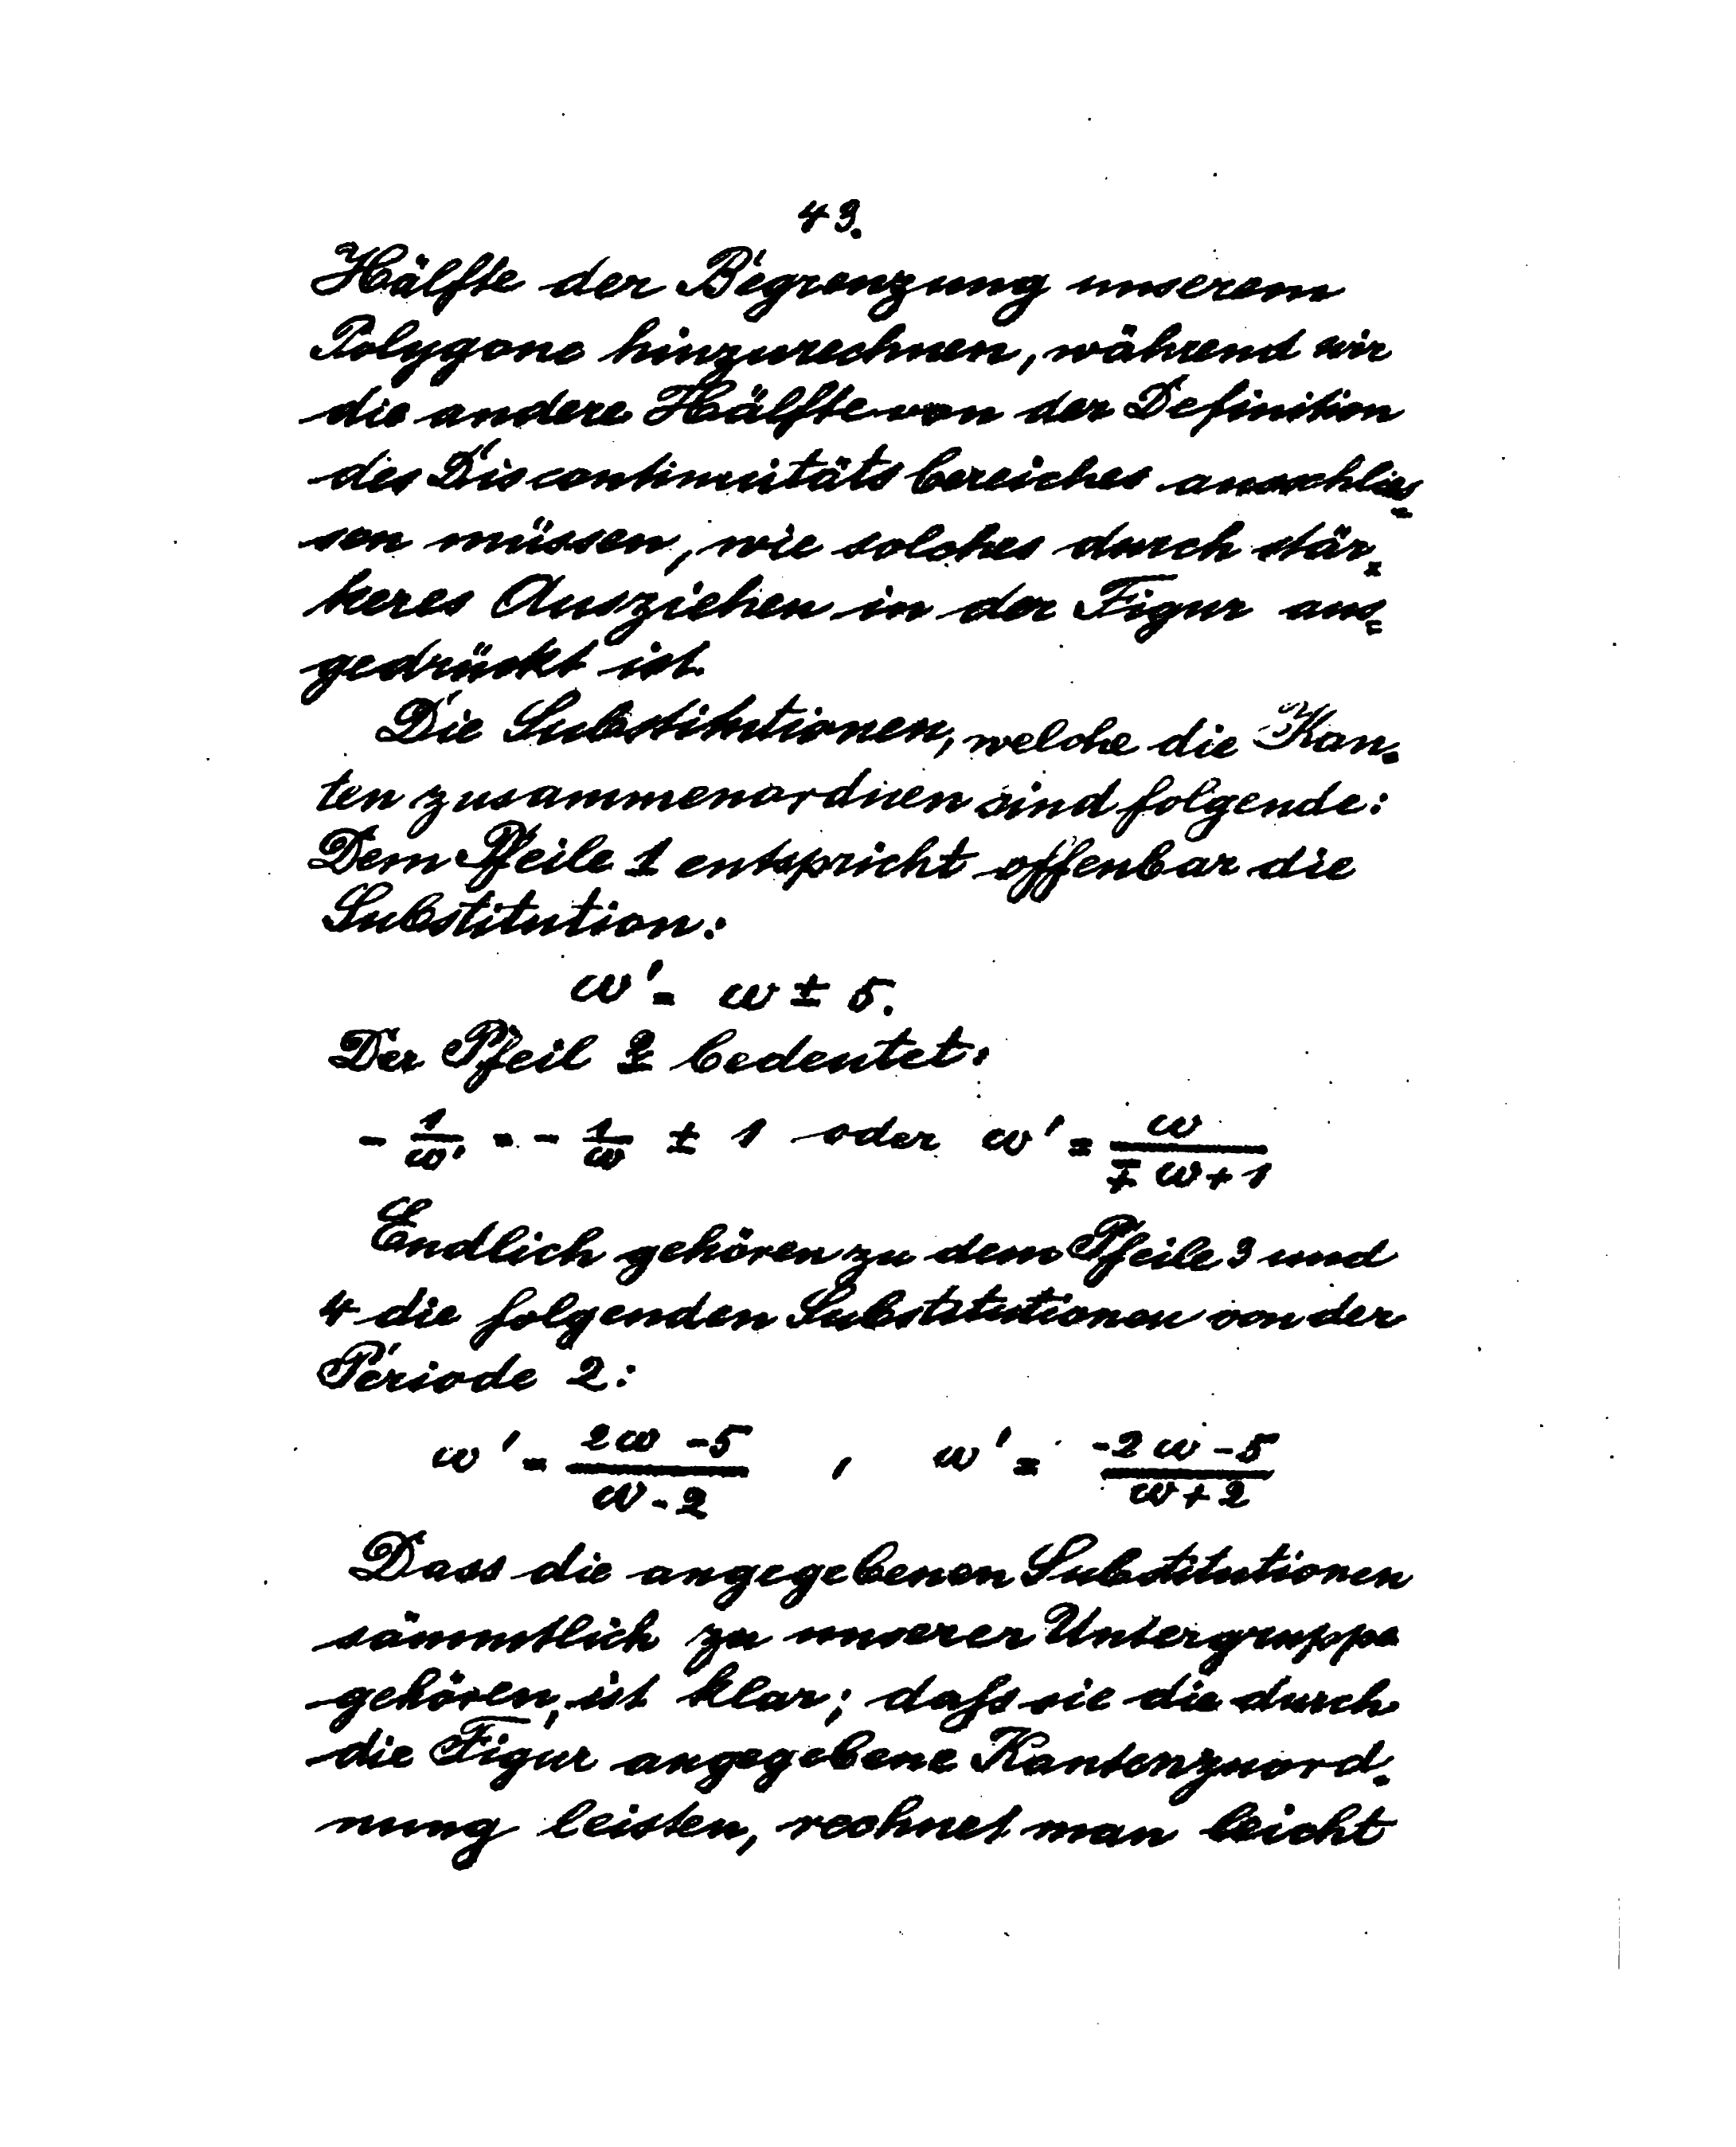 43.
Hälfte der Begrenzung unserem
Polygone hinzurechnen, während wir
die andere Hälfte von der Definition
des Discontinuitätsbereiches ausschlies=
sen müssen, wie solches durch stär=
keres Ausziehen in der Figur aus=
gedrückt ist.
Die Substitutionen, welche die Kan=
ten zusammenordnen sind folgende:
Dem Pfeile 1 entspricht offenbar die
Substitution:
ω' = ω ± 5.
Der Pfeil 2 bedeutet:
- 1/ω' = - 1/ω ± 1 oder ω' = ω/(∓ ω + 1)
Endlich gehören zu dem Pfeile 3 und
4 die folgenden Substitutionen von der
Periode 2:
ω' = (2ω - 5)/(ω - 2) , ω' = (-2ω - 5)/(ω + 2)
Dass die angegebenen Substitutionen
sämmtlich zu unserer Untergruppe
gehören, ist klar; daſs sie die durch
die Figur angegebene Kantenzuord=
nung leisten, rechnet man leicht